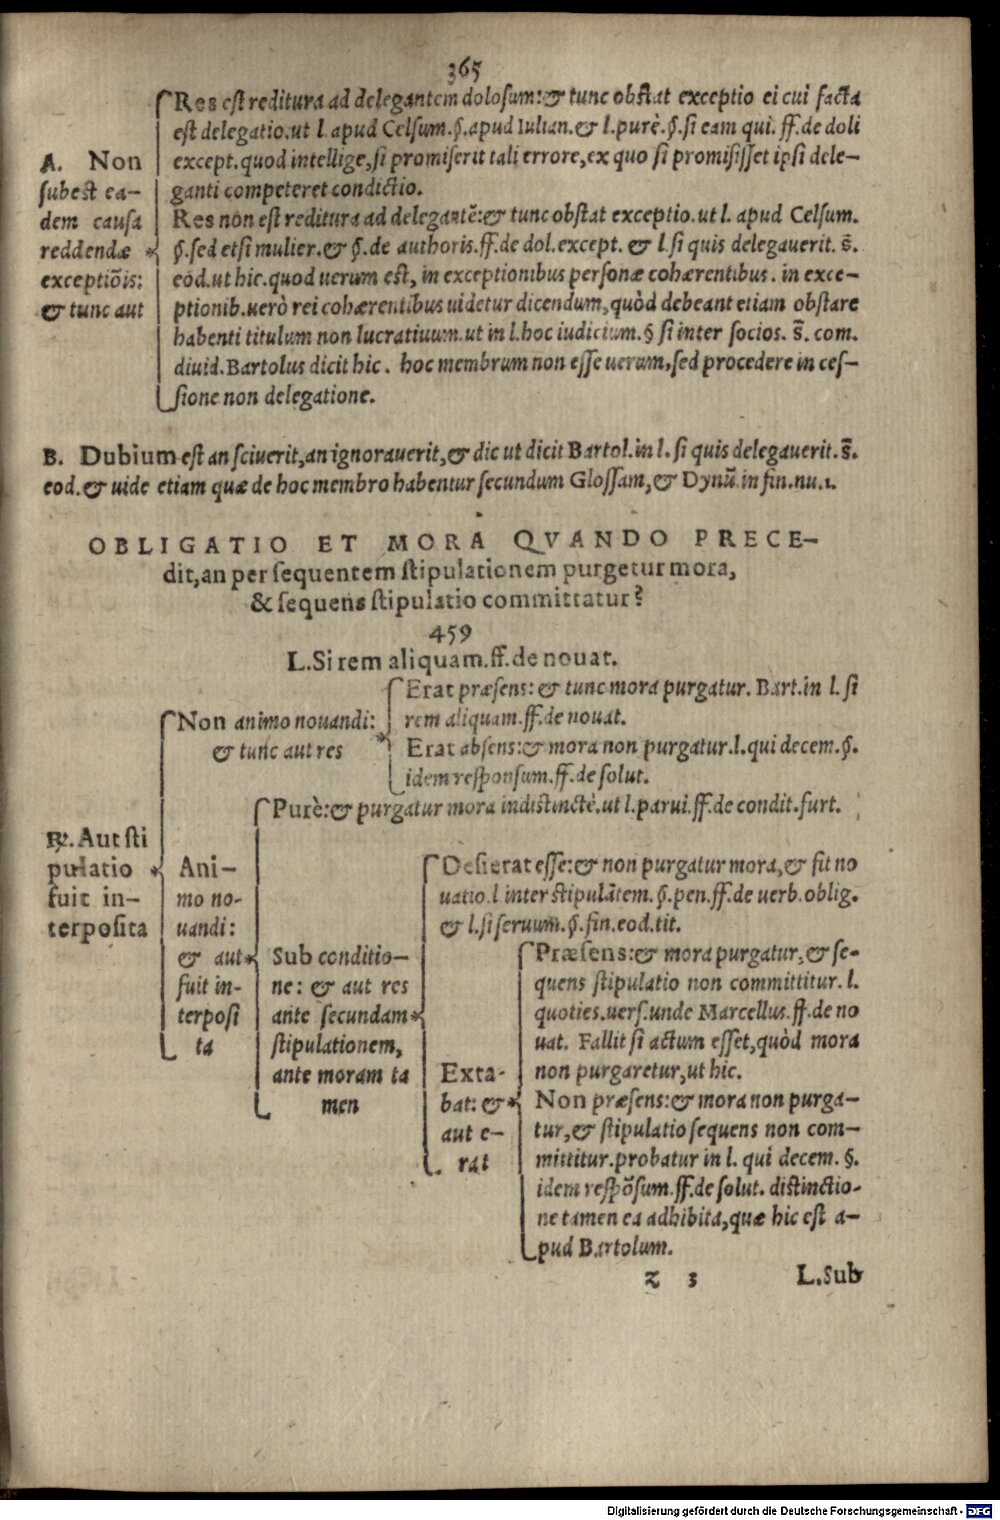 365
Res est reditura ad delegantem dolosum:& tunc obstat exceptio ei cui facta
est delegatio.ut l. apud Celsum.§.apud Iulian.& l.purè.§.si eam qui.ff.de doli
except.quod intellige,si promiserit tali errore,ex quo si promisisset ipsi dele-
ganti competeret condictio.
A. Non
subest ea-
dem causa
reddendæ
exceptiōis:
& tunc aut
Res non est reditura ad delegantē:& tunc obstat exceptio.ut l. apud Celsum.
§.sed etsi mulier.& §.de authoris.ff.de dol.except. & l.si quis delegauerit. s̄.
eod.ut hic.quod uerum est, in exceptionibus personæ cohærentibus. in exce-
ptionib.uerò rei cohærentibus uidetur dicendum,quòd debeant etiam obstare
habenti titulum non lucratiuum.ut in l.hoc iudicium.§ si inter socios. s̄. com.
diuid.Bartolus dicit hic. hoc membrum non esse uerum,sed procedere in ces-
sione non delegatione.
B. Dubium est an sciuerit,an ignorauerit,& dic ut dicit Bartol.in l.si quis delegauerit.s̄.
eod.& uide etiam quæ de hoc membro habentur secundum Glossam,& Dynū.in fin.nu.1.
OBLIGATIO ET MORA QVANDO PRECE-
dit,an per sequentem stipulationem purgetur mora,
& sequens stipulatio committatur?
459
L.Si rem aliquam.ff.de nouat.
℞. Aut sti
pulatio
fuit in-
terposita
Non animo nouandi:
& tunc aut res
Erat præsens: & tunc mora purgatur. Bart.in l. si
rem aliquam.ff.de nouat.
Erat absens:& mora non purgatur.l.qui decem.§.
idem responsum.ff.de solut.
Ani-
mo no-
uandi:
& aut
fuit in-
terposi
ta
Purè:& purgatur mora indistinctè.ut l.parui.ff.de condit.furt.
Sub conditio-
ne: & aut res
ante secundam
stipulationem,
ante moram ta
men
Desierat esse:& non purgatur mora,& fit no
uatio.l inter stipulātem.§.pen.ff.de uerb.oblig.
& l.si seruum.§.fin.eod.tit.
Exta-
bat: &
aut e-
rat
Præsens:& mora purgatur,& se-
quens stipulatio non committitur. l.
quoties.uers.unde Marcellus.ff.de no
uat. Fallit si actum esset,quòd mora
non purgaretur,ut hic.
Non præsens:& mora non purga-
tur,& stipulatio sequens non com-
mittitur.probatur in l. qui decem. §.
idem respōsum.ff.de solut. distinctio-
ne tamen ea adhibita,quæ hic est a-
pud Bartolum.
z 3 L.Sub
Digitalisierung gefördert durch die Deutsche Forschungsgemeinschaft - DFG